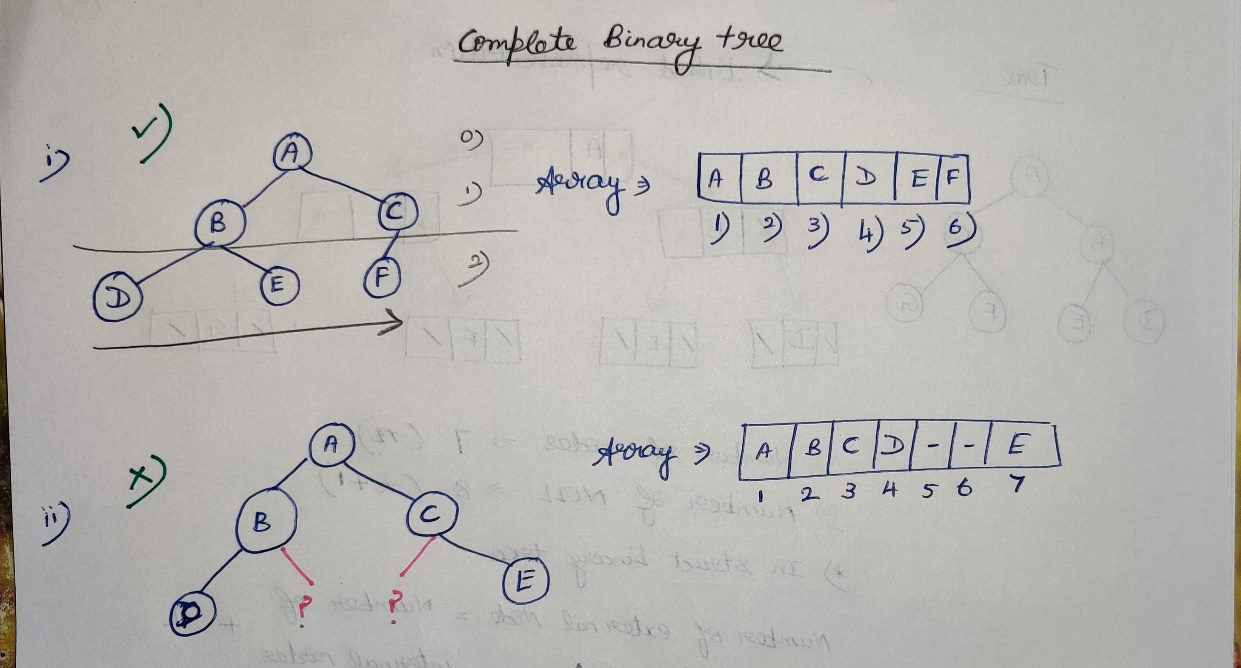 Complete Binary tree
i) ✓)
A
B C
D E F
0)
1)
2)
Array ⇒ A B C D E F
1) 2) 3) 4) 5) 6)
ii) ×)
A
B C
D ? ? E
Array ⇒ A B C D - - E
1 2 3 4 5 6 7